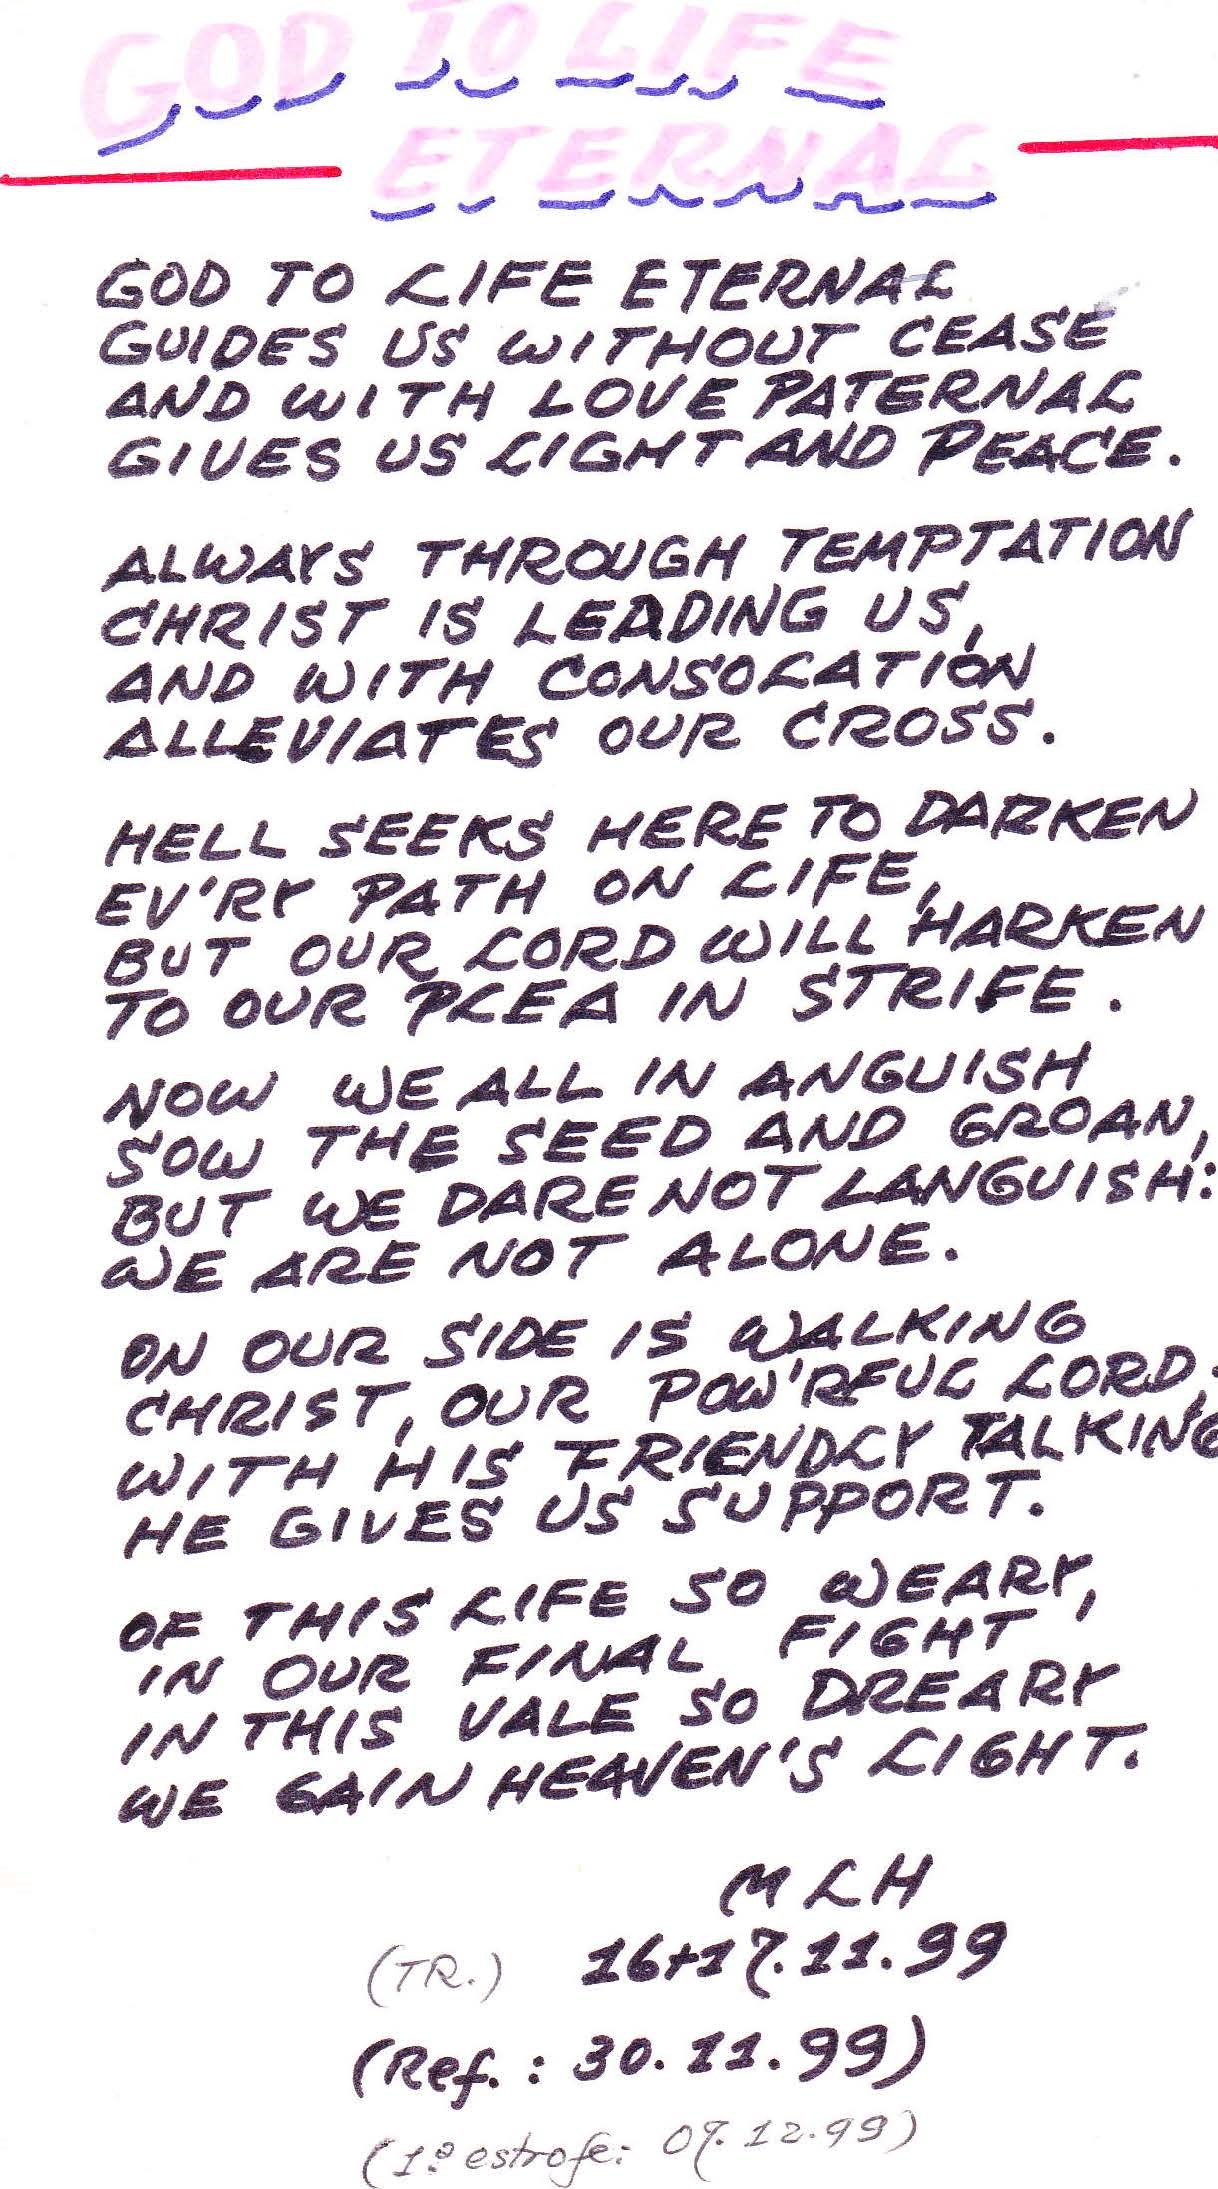 GOD TO LIFE
ETERNAL
GOD TO LIFE ETERNAL
GUIDES US WITHOUT CEASE
AND WITH LOVE PATERNAL
GIVES US LIGHT AND PEACE.
ALWAYS THROUGH TEMPTATION
CHRIST IS LEADING US,
AND WITH CONSOLATION
ALLEVIATES OUR CROSS.
HELL SEEKS HERE TO DARKEN
EV'RY PATH ON LIFE,
BUT OUR LORD WILL HARKEN
TO OUR PLEA IN STRIFE.
NOW WE ALL IN ANGUISH
SOW THE SEED AND GROAN,
BUT WE DARE NOT LANGUISH:
WE ARE NOT ALONE.
ON OUR SIDE IS WALKING
CHRIST, OUR POW'RFUL LORD;
WITH HIS FRIENDLY TALKING
HE GIVES US SUPPORT.
OF THIS LIFE SO WEARY,
IN OUR FINAL FIGHT
IN THIS VALE SO DREARY
WE GAIN HEAVEN'S LIGHT.
MLH
(TR.) 16+17.11.99
(Ref.: 30.11.99)
(1ª estrofe: 07.12.99)